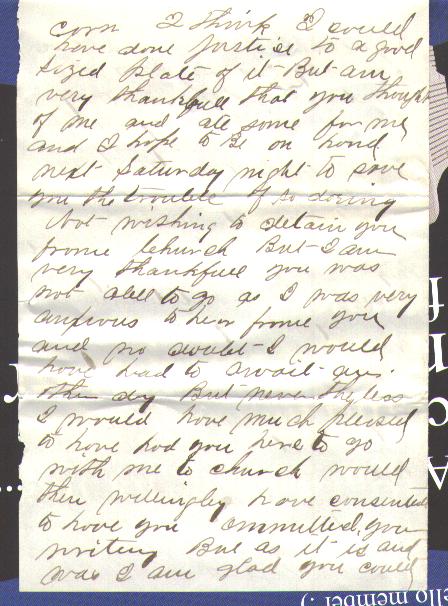 corn I think I could
have done justise to a good
sized plate of it But am
very thankfull that you thought
of me and ate some for me
and I hope to be on hand
next Saturday night to save
you the trouble of so doing
Not wishing to detain you
frome Church But I am
very thankfull you was
not abell to go as I was very
anxious to hear frome you
and no doubt I would
have had to wait ano
ther day But never the less
I would have much pleased
to have had you here to go
with me to church would
then willingley have consented
to have you ommitted you
writing But as it is and
was I am glad you could
ello member :)